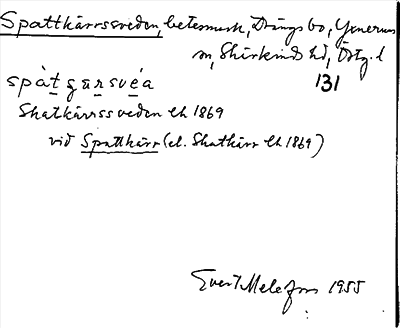 Spattkärrssveden, betesmark, Drängsbo, Yxnerums
sn, Skärkinds hd, Östg. l
131
spàt gärsvéa
Skatkärrssveden Ek 1869
vid Spattkärr (el. Skatkärr Ek 1869)
Evert Melefors 1955